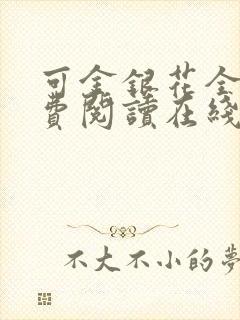 可金銀花全
費閱讀在綫
不大不小的夢